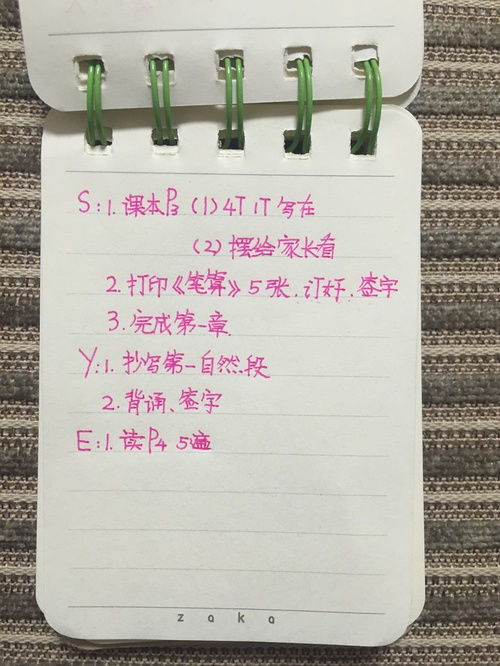 S:1.课本P3 (1)4T 1T 写在
(2)摆给家长看
2.打印《笔算》5张.订好、签字
3.完成第一章.
Y:1.抄写第一自然段
2.背诵、签字
E:1.读P4 5遍
zaka